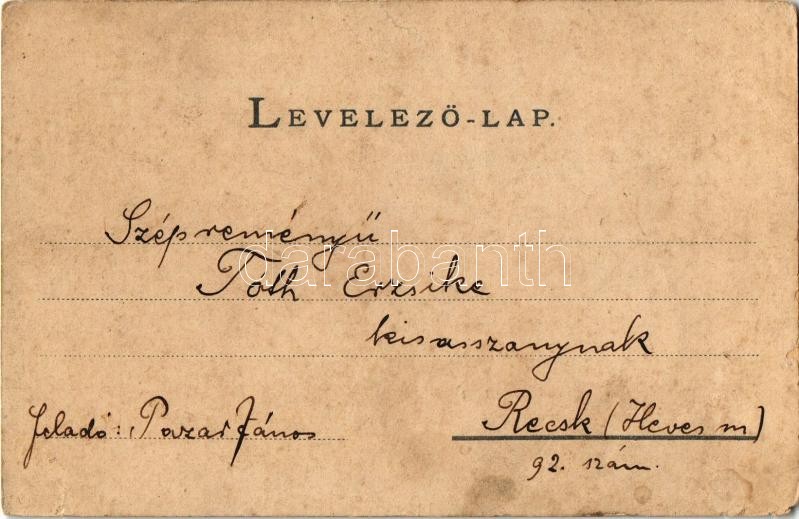 LEVELEZŐ-LAP.
Szépreményű
Tóth Erzsike
kisasszonynak
Feladó: Pazar János
Recsk (Heves m)
92. szám.
darabanth